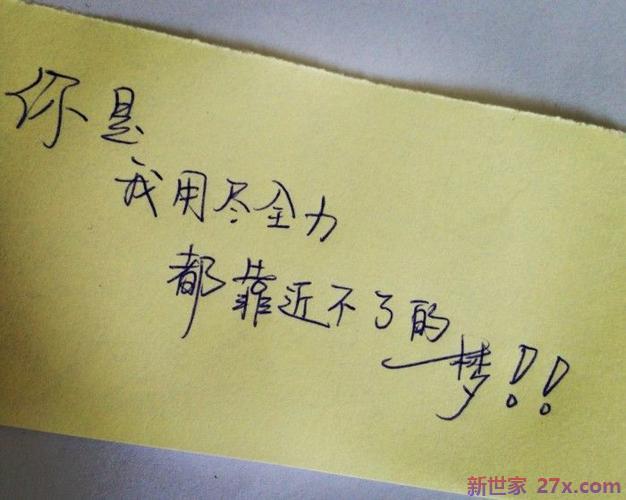 你是
我用尽全力
都靠近不了的
梦!!
新世家 27x.com